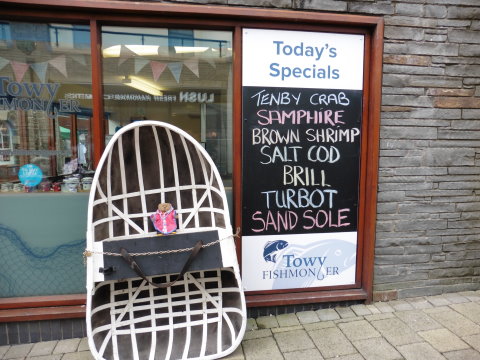 Today's
Specials
TENBY CRAB
SAMPHIRE
BROWN SHRIMP
SALT COD
BRILL
TURBOT
SAND SOLE
Towy
FISHMONGER
Towy
FISHMONGER
LUSH